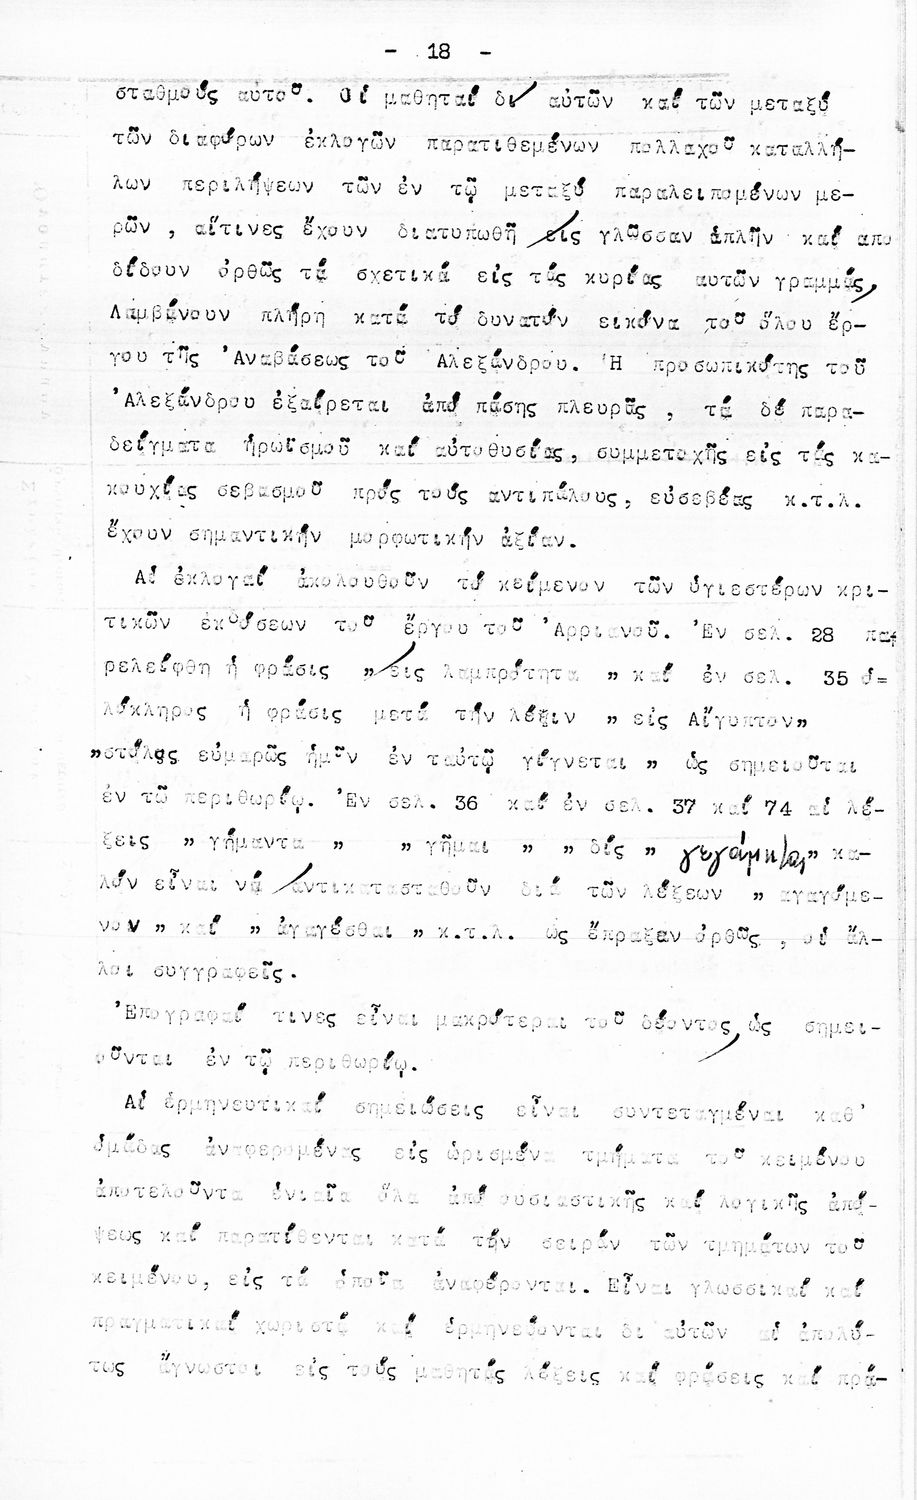 - 18 -
σταθμούς αὐτοῦ. Οἱ μαθηταί δι' αὐτῶν καί τῶν μεταξύ
τῶν διαφόρων ἐκλογῶν παρατιθεμένων πολλαχοῦ καταλλή-
λων περιλήψεων τῶν ἐν τῷ μεταξύ παραλειπομένων με-
ρῶν , αἵτινες ἔχουν διατυπωθῆ εἰς γλῶσσαν ἁπλῆν καί απο
δίδουν ὀρθῶς τά σχετικά εἰς τάς κυρίας αυτῶν γραμμάς,
Λαμβάνουν πλήρη κατά τό δυνατόν εικόνα τοῦ ὅλου ἔρ-
γου τῆς 'Αναβάσεως τοῦ 'Αλεξάνδρου. Ἡ προσωπικότης τοῦ
'Αλεξάνδρου ἐξαίρεται ἀπό πάσης πλευρᾶς , τά δέ παρα-
δείγματα ἡρωϊσμοῦ καί αὐτοθυσίας, συμμετοχῆς εἰς τάς κα-
κουχίας σεβασμοῦ πρός τούς αντιπάλους, εὐσεβέας κ.τ.λ.
ἔχουν σημαντικήν μορφωτικήν ἀξίαν.
Αἱ ἐκλογαί ἀκολουθοῦν τό κείμενον τῶν ὑγιεστέρων κρι-
τικῶν ἐκδόσεων τοῦ ἔργου τοῦ 'Αρριανοῦ. 'Εν σελ. 28 πα
ρελείφθη ἡ φράσις „ εις λαμπρότητα „ καί ἐν σελ. 35 ὁ=
λόκληρος ἡ φράσις μετά τήν λέξιν „ εἰς Αἴγυπτον„
„στόλος εὐμαρῶς ἡμῖν ἐν ταὐτῷ γίγνεται „ ὡς σημειοῦται
ἐν τῶ περιθωρίῳ. 'Εν σελ. 36 καί ἐν σελ. 37 καί 74 αἱ λέ-
ξεις „ γήμαντα „ „ γῆμαι „ „ δίς „ „ κα-
λόν εἶναι νά ἀντικατασταθοῦν διά τῶν λέξεων „ αγαγόμε-
νον „ καί „ ἀγαγέσθαι „ κ.τ.λ. ὡς ἔπραξαν ὀρθῶς , οἱ ἄλ-
λοι συγγραφεῖς.
'Επιγραφαί τινες εἶναι μακρότεραι τοῦ δέοντος, ὡς σημει-
οῦνται ἐν τῷ περιθωρίῳ.
Αἱ ἑρμηνευτικαί σημειώσεις εἶναι συντεταγμέναι καθ'
ὁμάδας ἀναφερομένας εἰς ὡρισμένα τμήματα τοῦ κειμένου
ἀποτελοῦντα ἑνιαῖα ὅλα ἀπό ουσιαστικῆς καί λογικῆς ἀπό-
ψεως καί παρατίθενται κατά τήν σειράν τῶν τμημάτων τοῦ
κειμένου, εἰς τά ὁποῖα ἀναφέρονται. Εἶναι γλωσσικαί καί
πραγματικαί χωριστά καί ἑρμηνεύονται δι αὐτῶν αἱ ἀπολύ-
τως ἄγνωστοι εἰς τούς μαθητάς λέξεις καί φράσεις καί πρά-